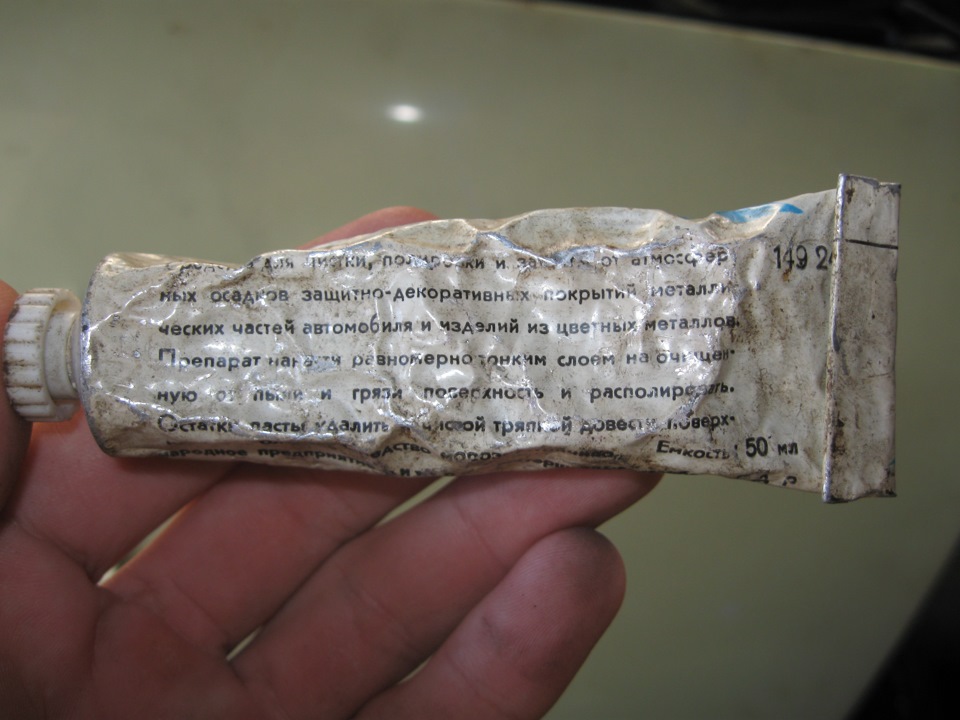 для чистки, полировки и от атмосфер
149 2
ных осадков защитно-декоративных покрытий металли
ческих частей автомобиля и изделий из цветных металлов.
Препарат нанести равномерно тонким слоем на очищен-
ную от пыли и грязи поверхность и располировать.
Остатки пасты удалить чистой тряпкой довести поверх-
Емкость: 50 мл
народное предприятие